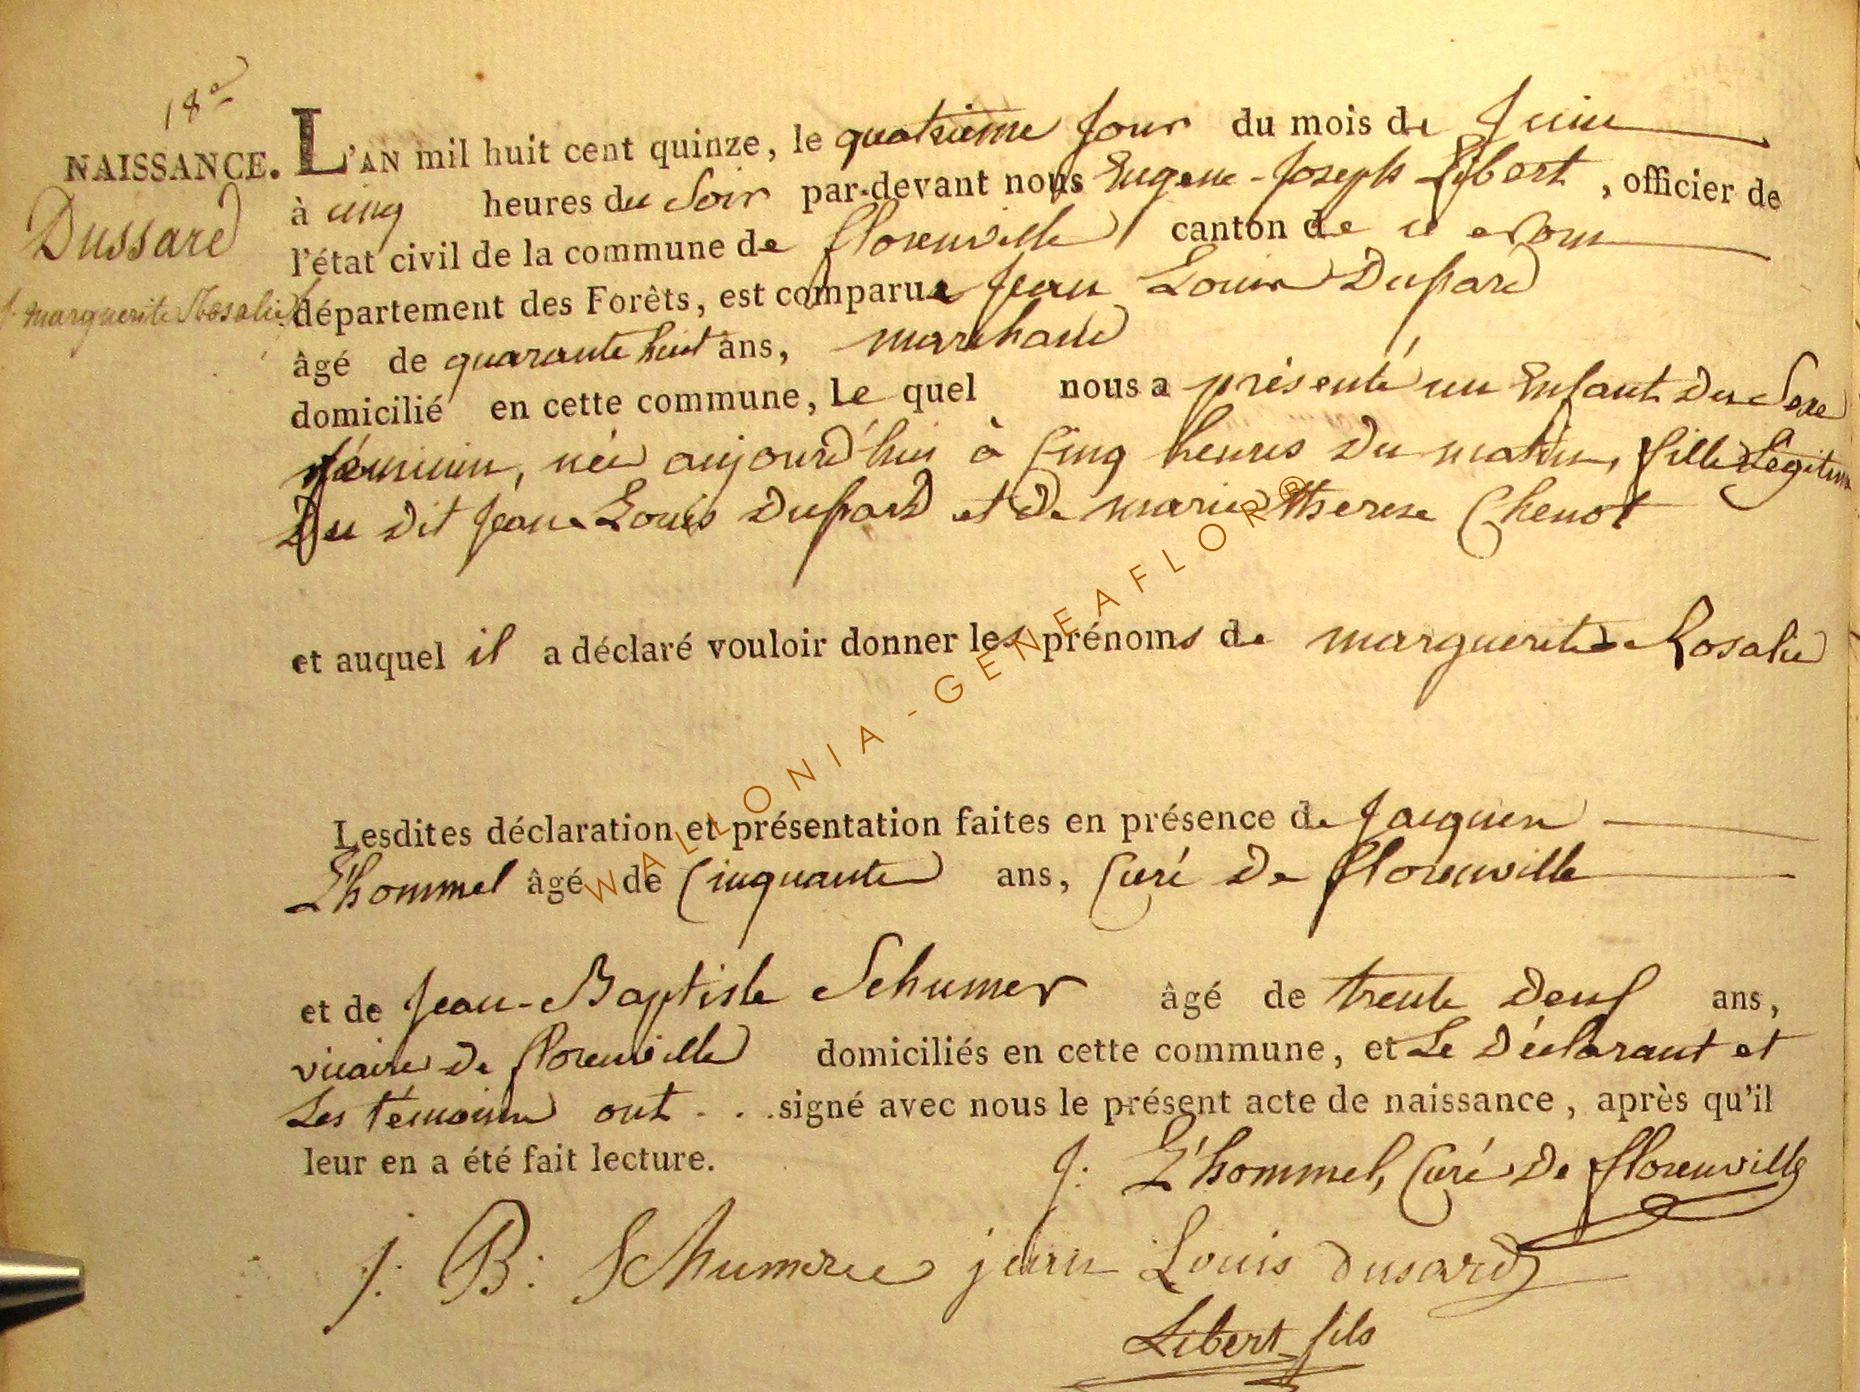 18e
NAISSANCE.
Dussard
marguerite Rosalie
L'AN mil huit cent quinze, le quatrieme jour du mois de Juin
à cinq heures du Soir par-devant nous Eugene-Joseph Libert, officier de
l'état civil de la commune de florenville canton de
département des Forêts, est comparu Jean Louis Dussard
âgé de quarante huit ans, marchand
domicilié en cette commune, Le quel nous a présenté un Enfant du Sexe
féminin, née aujourd'hui à Cinq heures du matin, fille Légitime
Du dit Jean Louis Dussard et de marie therese Chenot
et auquel il a déclaré vouloir donner les prénoms de marguerite Rosalie
Lesdites déclaration et présentation faites en présence de Jacques
L'hommel âgé de Cinquante ans, Curé De florenville
et de Jean-Baptiste Schumer âgé de trente deux ans,
vicaire de florenville domiciliés en cette commune, et Le Déclarant et
Les témoins ont signé avec nous le présent acte de naissance, après qu'il
leur en a été fait lecture.
J: L'hommel, Curé De florenville
j: B: Schumer jean Louis dusard
Libert fils
WALLONIA-GENEAFLOR®